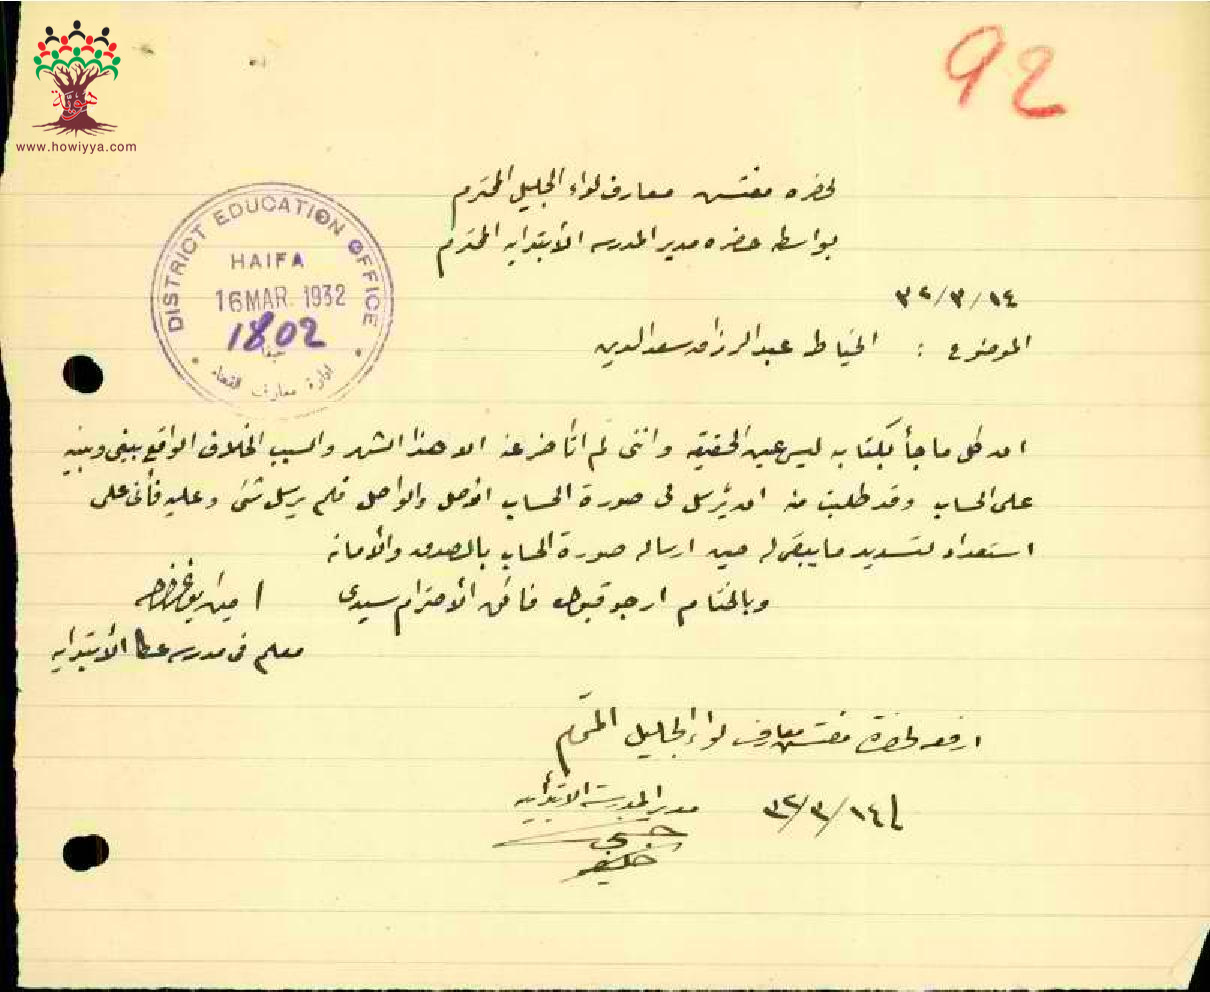 92
هوية
www.howiyya.com
لحضرة مفتش معارف لواء الجليل المحترم
بواسطة حضرة مدير المدرسة الأبتدايه المحترم
DISTRICT EDUCATION OFFICE
HAIFA
16 MAR. 1932
1802
حيفا
ادارة معارف القضاء
١٤/٣/٣٢
الموضوع : الخياط عبد الرزاق سعد الدين
ان كل ما جأ بكتابه ليس عين الحقيقه واننى لم اتأخر عنه الا هذا الشهر والسبب الخلاف الواقع بينى وبينه
على الحساب وقد طلبت منه ان يُرسل لى صورة الحساب الاصل والواصل فلم يرسل شئ وعليه فأنى على
استعداد لتسديد ما يبقى له حين ارساله صورة الحساب بالصدق والأمانه
وبالختام ارجو قبول فائق الأحترام سيدى
امين
معلم فى مدرسة عكا الأبتدايه
ارفعه لحضرة مفتش معارف لواء الجليل المحترم
١٤/٣/٣٢
مدير المدرسة الابتدايه